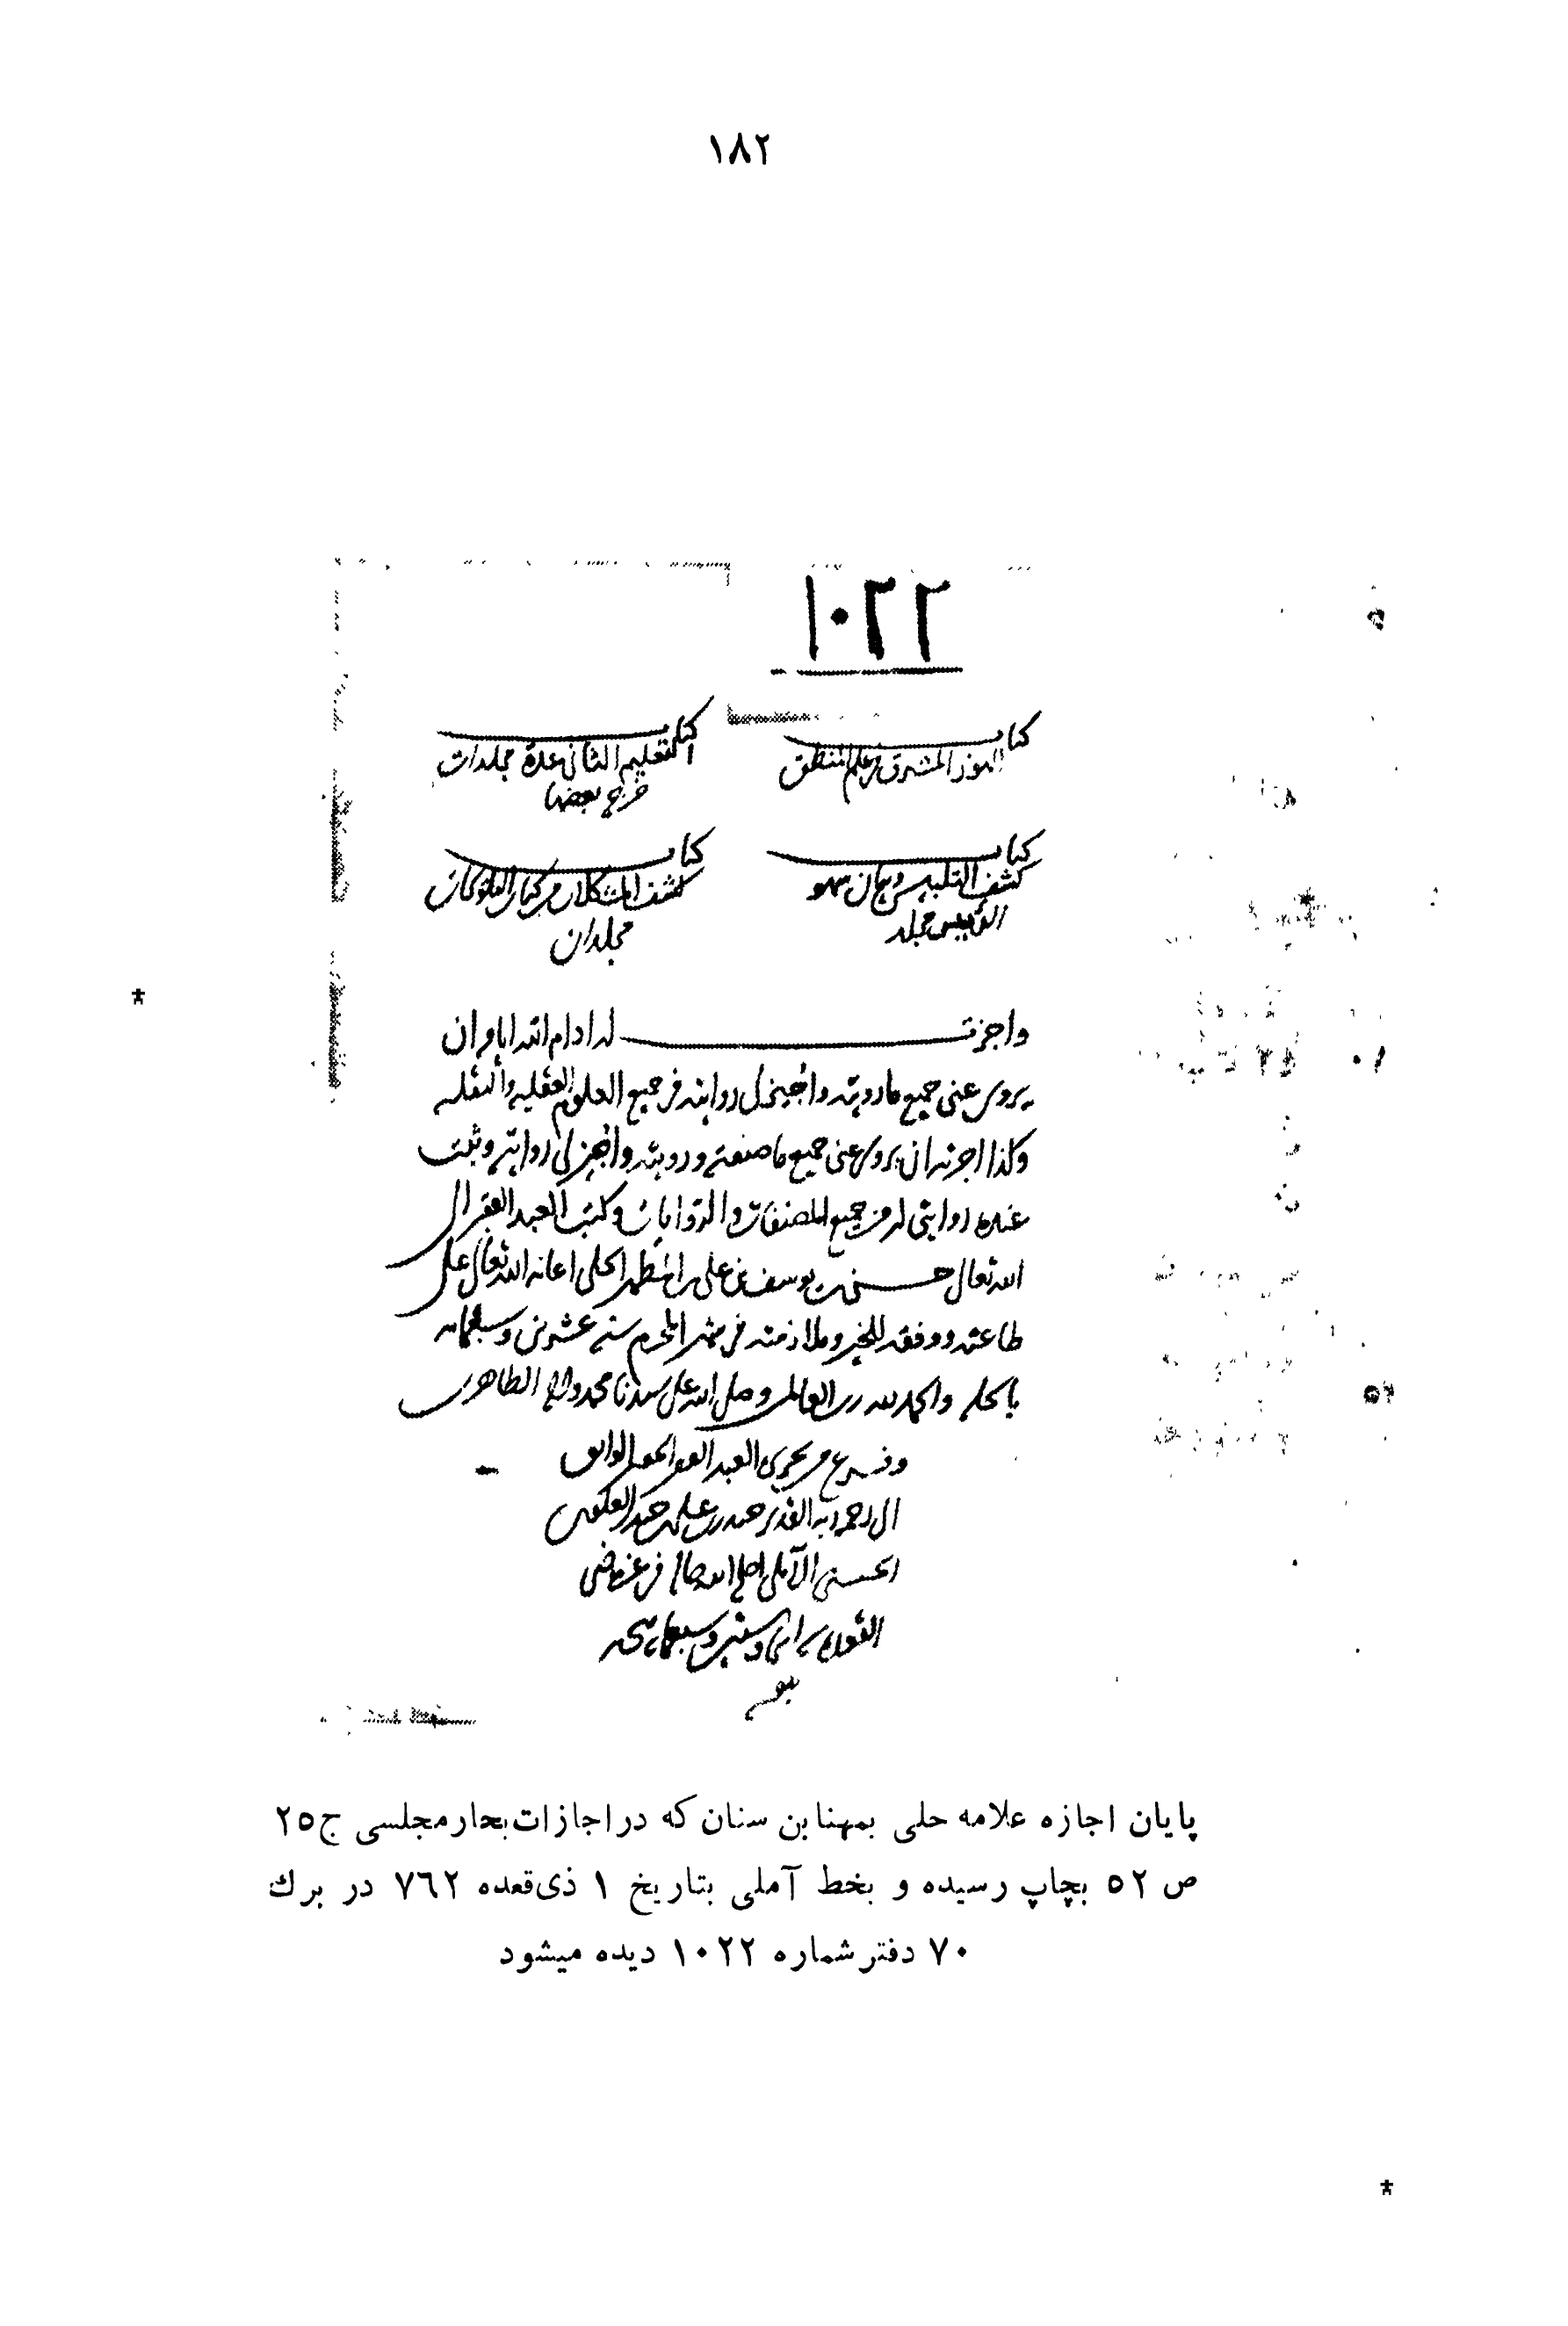 ١٨٢
١٠٢٢
كتاب
النور المشرق في علم المنطق
كتاب
التعليم الثاني عدة مجلدات
خرج بعضها
كتاب
كشف التلبيس وبيان سهو
الرئيس مجلد
كتاب
كشف المشكلات من كتاب التلويحات
مجلدان
واجزت له ادام الله ايامه ان
يروي عني جميع ما رويته واجيز لي روايته في جميع العلوم العقلية والنقلية
وكذا اجزت له ان يروي عني جميع ما صنفته ورويته واجيز لي روايته وثبت
عنده روايتي له من جميع المصنفات والروايات وكتب العبد الفقير الى
الله تعالى حسن بن يوسف بن علي بن المطهر الحلي اعانه الله تعالى على
طاعته ووفقه للخير وملازمته في شهر المحرم سنة عشرين وسبعمائة
بالحلة والحمد لله رب العالمين وصلى الله على سيدنا محمد واله الطاهرين
وفرغ من تحريره العبد الفقير
الى رحمة ربه القدير حيدر بن علي بن حيدر العلوي
الحسيني الآملي اصلح الله حاله في غرة ذي
القعدة سنة اثنى وستين وسبعمائة
پایان اجازه علامه حلی بمهنا بن سنان که در اجازات بحار مجلسی ج ٢٥
ص ٥٢ بچاپ رسیده و بخط آملی بتاریخ ١ ذی‌قعده ٧٦٢ در برك
٧٠ دفتر شماره ١٠٢٢ دیده میشود